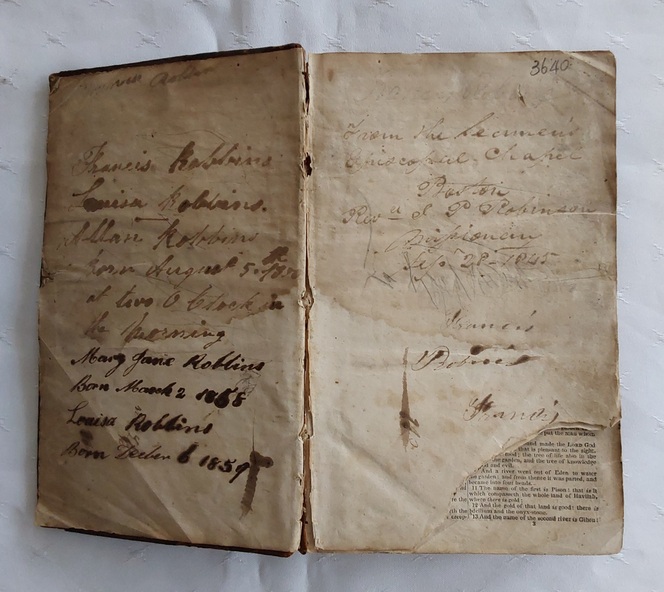 Francis Robbins
Louisa Robbins.
Allan Robbins
Born August 5.
at two O Clock in
the morning
Mary Jane Robbins
Born March 2 1858
Louisa Robbins
Born 6 1859
3640
From the Seamen's
Episcopal Chapel
Boston
Revd P Robinson
Missionary
Sep. 28 1845
Francis
Francis
put the man whom
made the LORD God
is pleasant to the sight,
food; the tree of life also in the
garden, and the tree of knowledge
and evil.
And a river went out of Eden to water
garden; and from thence it was parted, and
became into four heads.
11 The name of the first is Pison: that is it
which compasseth the whole land of Havilah,
where there is gold;
12 And the gold of that land is good: there is
bdellium and the onyx-stone.
13 And the name of the second river is Gihon: